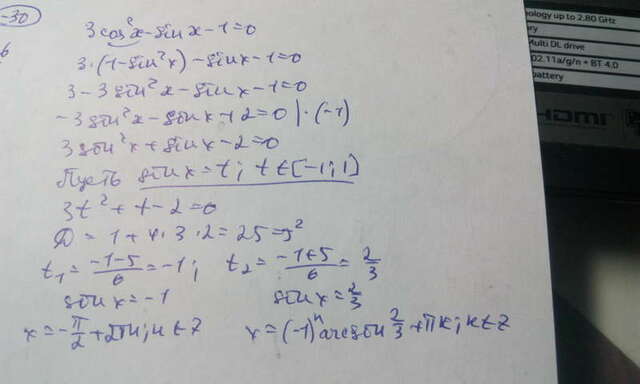 -30
6
3cos²x-sinx-1=0
3·(1-sin²x)-sinx-1=0
3-3sin²x-sinx-1=0
-3sin²x-sinx+2=0 |·(-1)
3sin²x+sinx-2=0
Пусть sinx=t; t∈[-1;1]
3t²+t-2=0
D=1+4·3·2=25=5²
t₁=(-1-5)/6=-1; t₂=(-1+5)/6=2/3
sinx=-1 sinx=2/3
x=-π/2+2πn; n∈Z x=(-1)ⁿarcsin2/3+πk; k∈Z
ology up to 2.80 GHz
ry
Multi DL drive
02.11a/g/n + BT 4.0
battery
HDMI